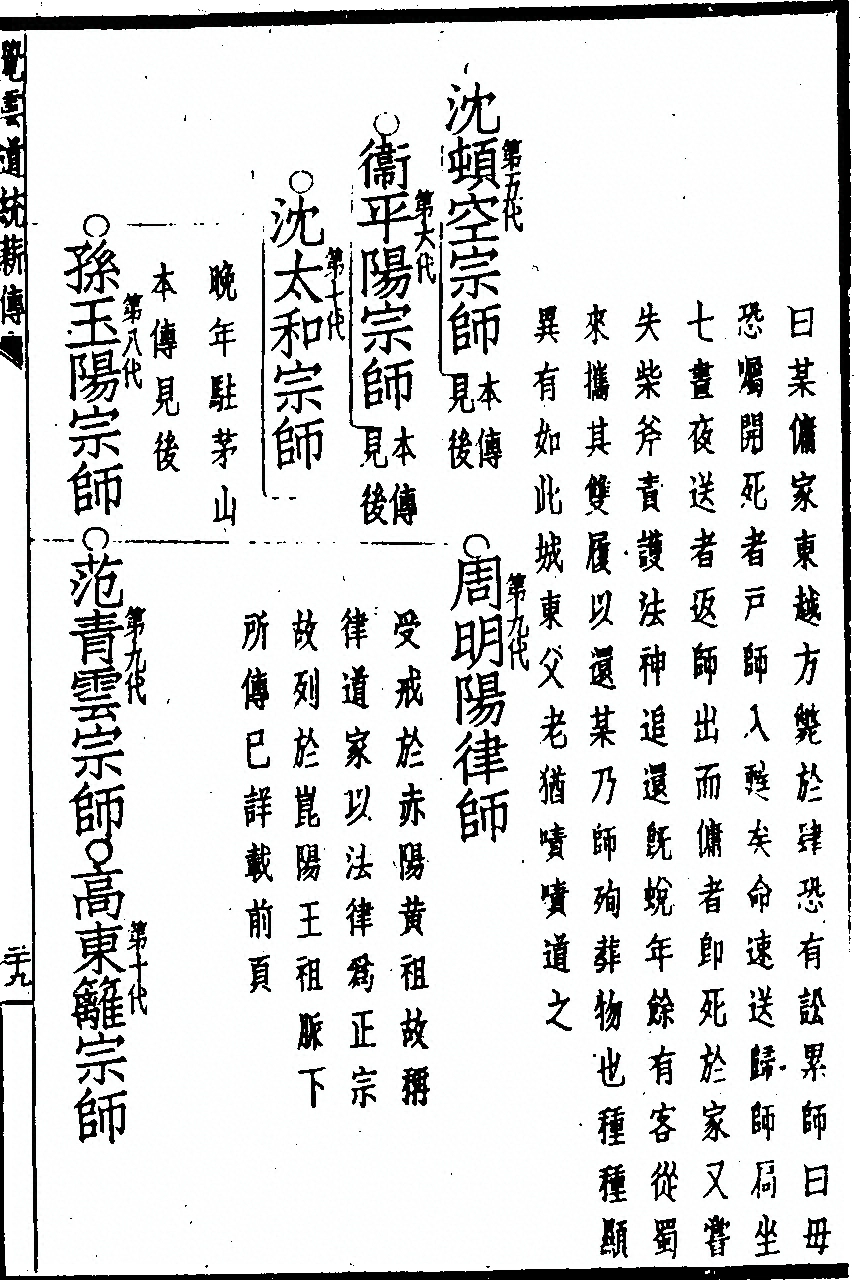 曰某傭家東越方斃於肆恐有訟累師曰毋
恐屬開死者戸師入甦矣命速送歸師扃坐
七晝夜送者返師出而傭者即死於家又嘗
失柴斧責護法神追還旣蛻年餘有客從蜀
來攜其雙履以還某乃師殉葬物也種種顯
異有如此城東父老猶嘖嘖道之
沈頓空宗師
第五代
本傳
見後
周明陽律師
第九代
受戒於赤陽黄祖故稱
律道家以法律爲正宗
故列於崑陽王祖脈下
所傳已詳載前頁
衞平陽宗師
第六代
本傳
見後
沈太和宗師
第七代
晚年駐茅山
本傳見後
孫玉陽宗師
第八代
范青雲宗師
第九代
高東籬宗師
第十代
覺雲道統薪傳
二十九